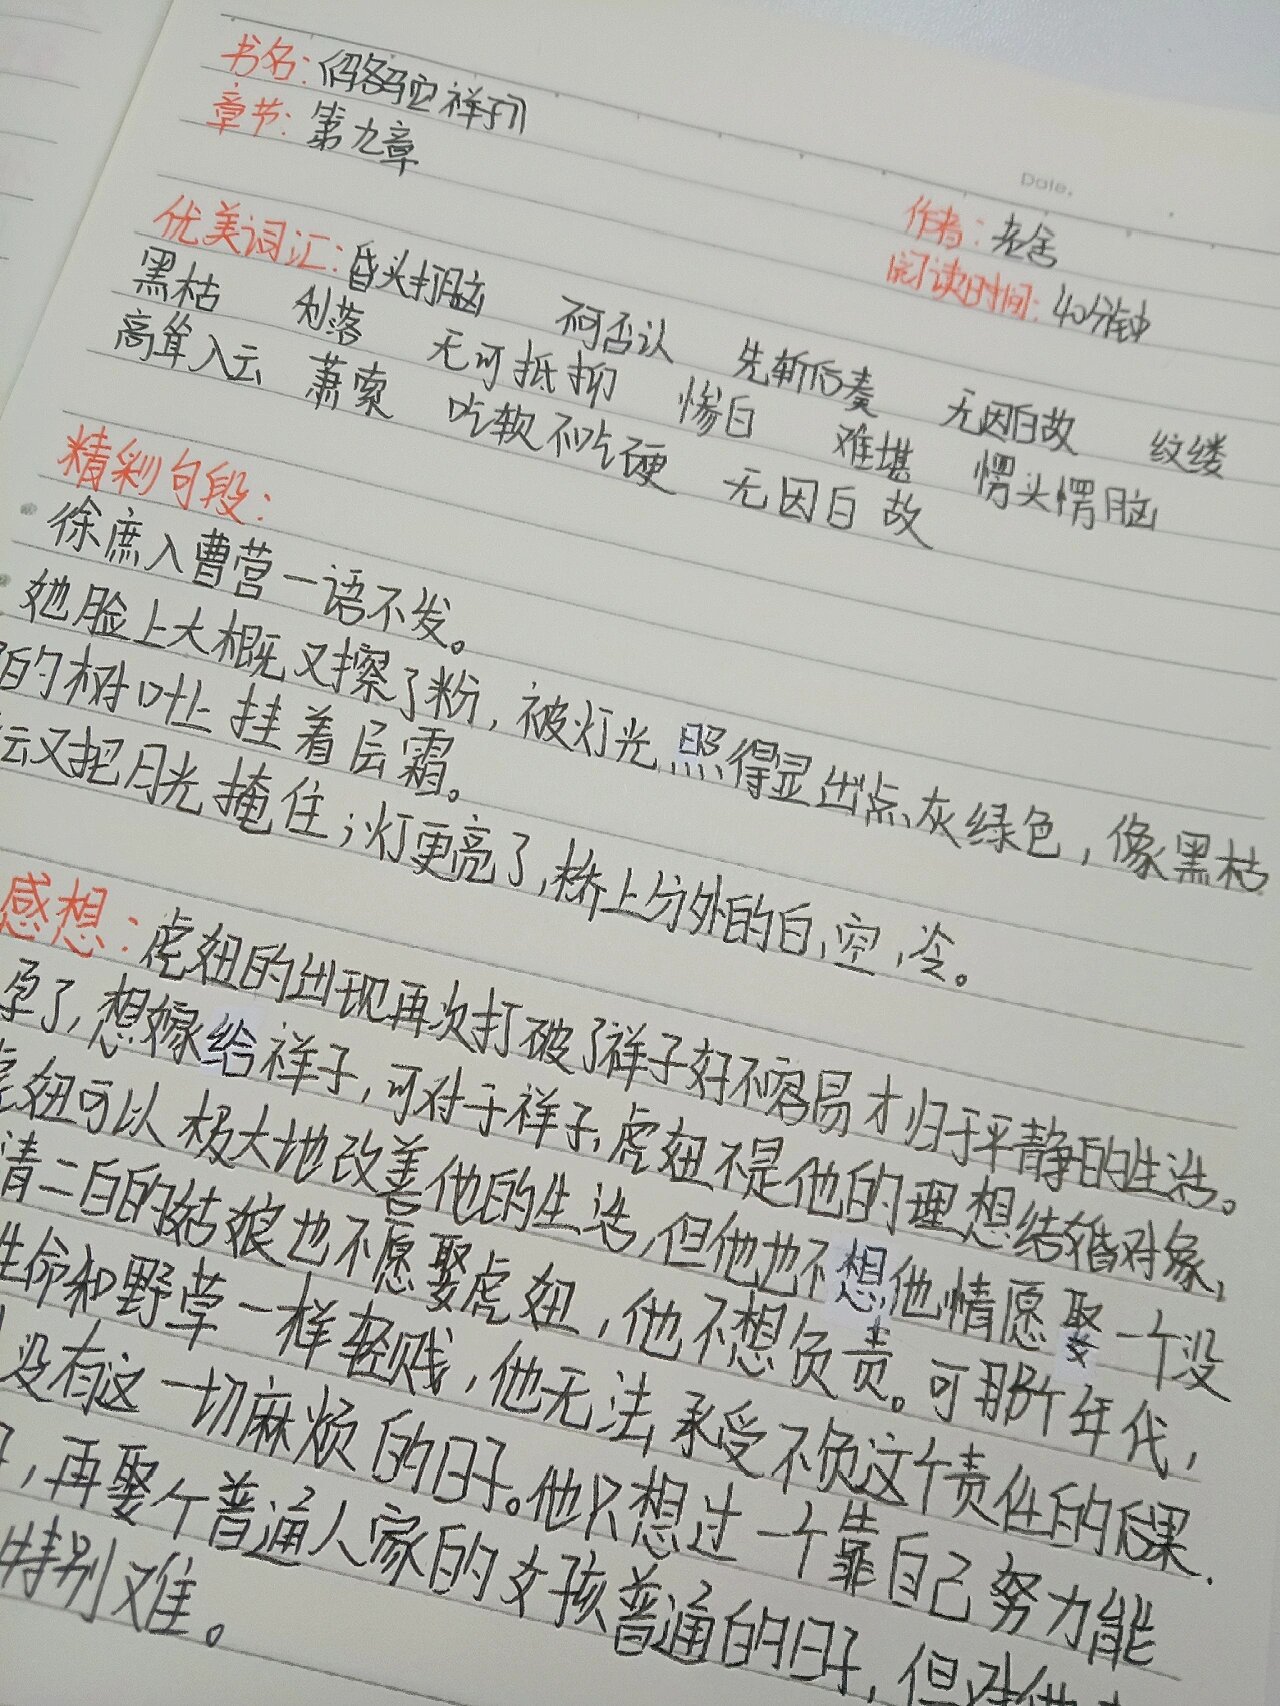 书名：《骆驼祥子》
章节：第九章
Date.
作者：老舍
阅读时间：40分钟
优美词汇：昏头打脑 不可否认 先斩后奏 无因白故 纹缕
黑枯 利落 无可抵抑 惨白 难堪 愣头愣脑
高耸入云 萧索 吃软不吃硬 无因白故
精彩句段：
徐庶入曹营一语不发。
她脸上大概又擦了粉，被灯光照得显出点灰绿色，像黑枯
的树叶上挂着层霜。
云又把月光掩住；灯更亮了，桥上分外的白，空，冷。
感想：虎妞的出现再次打破了祥子好不容易才归于平静的生活。
孕了，想嫁给祥子，可对于祥子，虎妞不是他的理想结婚对象，
虎妞可以极大地改善他的生活，但他也不想，他情愿娶一个没
清二白的姑娘也不愿娶虎妞，他不想负责。可那个年代，
生命和野草一样轻贱，他无法承受不负这个责任的后果.
没有这一切麻烦的日子。他只想过一个靠自己努力能
，再娶个普通人家的女孩普通的日子，但
特别难。